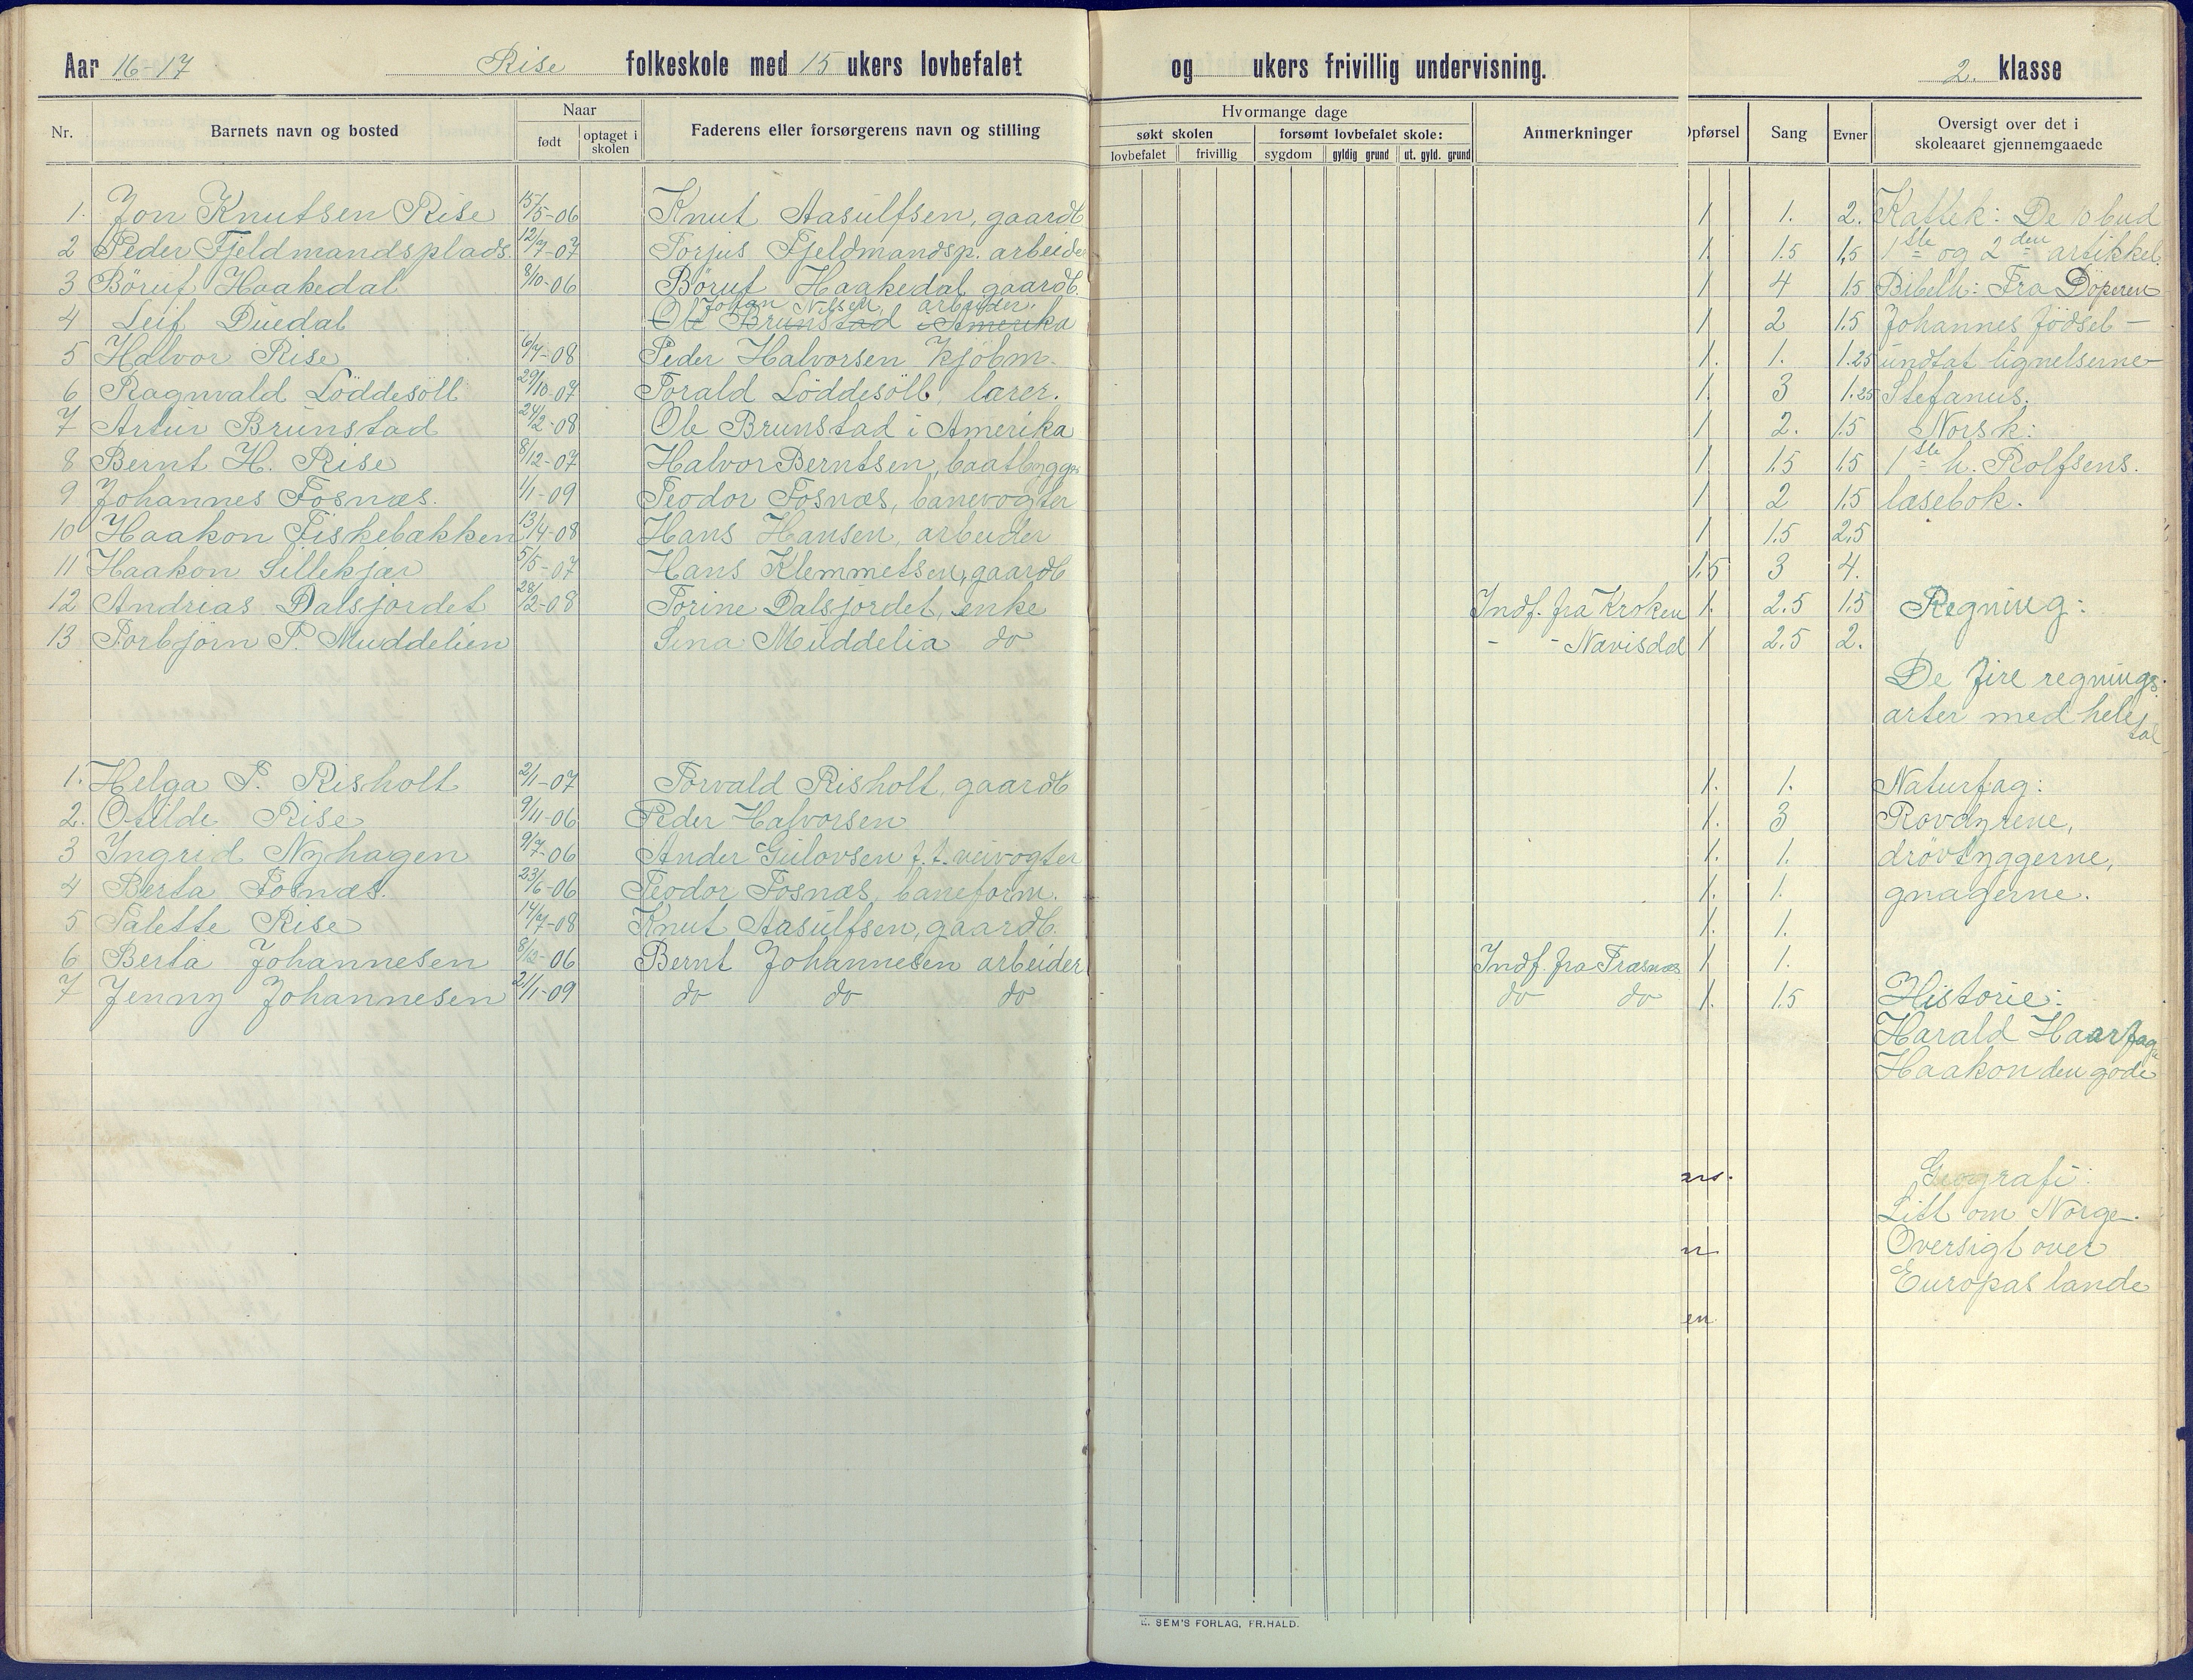 Aar 16-17 Rise folkeskole med 15 ukers lovbefalet og ukers frivillig undervisning. 2. klasse
Nr. Barnets navn og bosted Naar født optaget i skolen Faderens eller forsørgerens navn og stilling Hvormange dage søkt skolen lovbefalet frivillig forsømt lovbefalet skole: sygdom gyldig grund ut. gyld. grund Anmerkninger Opførsel Sang Evner Oversigt over det i skoleaaret gjennemgaaede
1. Jon Knutsen Rise 15/5-06 Knut Aasulfsen, gaardb 1 1. 2. Kattek: De 10 bud
2 Peder Fjeldmandsplads. 12/7-07 Torjus Fjeldmandsp. arbeider 1. 1.5 1,5 1ste og 2den artikkel.
3 Böruf Haakedal 8/10-06 Böruf Haakedal gaardb. 1 4 1.5 Bibelh: Fra Döperen
Johan Nilsen, arbeider.
4 Leif Duedal Ole Brunstad i Amerika 1 2 1.5 Johannes födsel -
5 Halvor Rise 6/7-08 Peder Halvorsen kjöbm. 1. 1. 1.25 undtat lignelserne -
6 Ragnvald Löddesöll 29/10-07 Torald Löddesöll, lærer. 1. 3 1.25 Stefanus.
7 Artur Brunstad 24/2-08 Ole Brunstad i Amerika 1 2. 1.5 Norsk:
8 Bernt H. Rise 8/12-07 Halvor Berntsen, baatbygger 1 1.5 1.5 1ste h. Rolfsens.
9 Johannes Fosnæs. 1/1-09 Teodor Fosnæs, banevogter 1 2 1.5 læsebok.
10 Haakon Fiskebækken 13/4-08 Hans Hansen, arbeider 1 1.5 2.5
11 Haakon Lillekjær 5/5-07 Hans Klemmetsen, gaardb 1.5 3 4.
12 Andrias Dalsjordet 28/2-08 Torine Dalsjordet, enke Indf. fra Kroken 1. 2.5 1.5 Regning:
13 Torbjörn P. Muddelien Lina Muddelia do - - Navisdal 1 2.5 2.
De fire regnings-
arter med hele
tal
1. Helga T. Risholt 2/1-07 Torvald Risholt, gaardb 1. 1. Naturfag:
2. Otilde Rise 9/11-06 Peder Halvorsen 1. 3 Rovdyrene,
3 Ingrid Nyhagen 9/7-06 Ander Gulovsen f. t. veivogter 1. 1. drövtyggerne,
4 Berta Fosnæs. 23/6-06 Teodor Fosnæs, baneform. 1. 1. gnagerne.
5 Talette Rise 14/7-08 Knut Aasulfsen, gaardb. 1. 1.
6 Berta Johannesen 8/12-06 Bernt Johannesen arbeider Indf. fra Træsnæs 1 1.
7 Jenny Johannesen 21/1-09 do do do do do 1. 1.5 Historie:
Harald Haarfag
Haakon den gode
Geografi:
Litt om Norge.
Oversigt over
Europas lande
E. SEM'S FORLAG, FR.HALD.